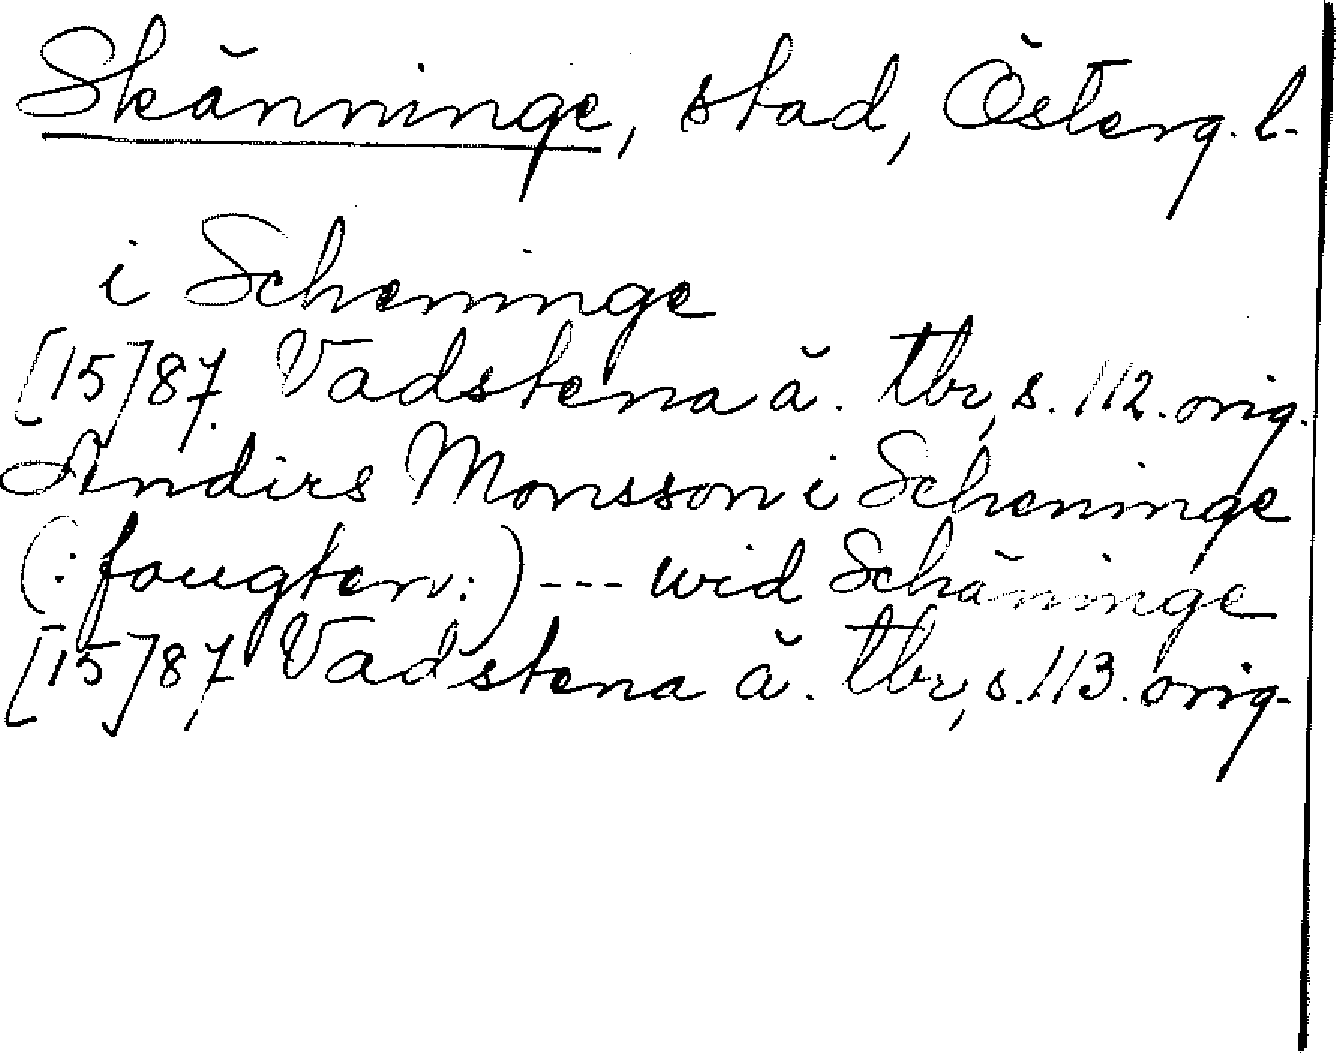 Skänninge, stad, Österg. l.
i Scheninge
[15]87. Vadstena ä. tbr, s. 112. orig.
Andirs Monsson i Scheninge
(: fougten :) --- wid Schäninge
[15]87, Vadstena ä. tbr, s. 113. orig.